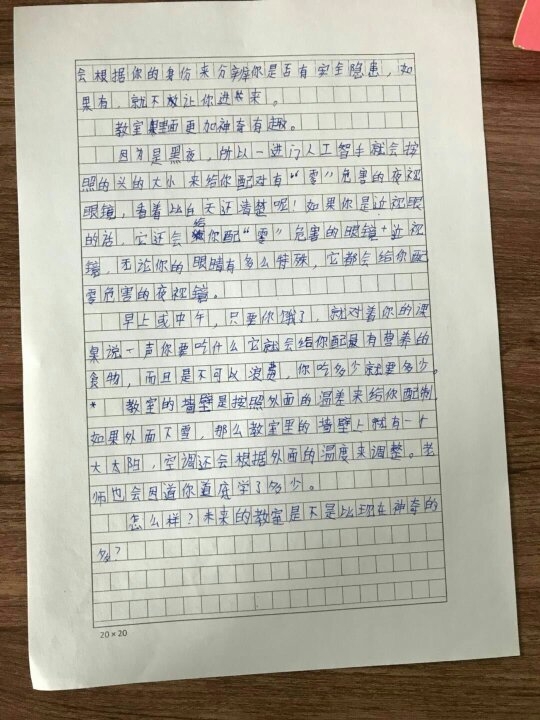 会根据你的身份来分辨你是否有安全隐患，如
果有，就不放让你进来。
教室里面更加神奇有趣。
因为是黑夜，所以一进门人工智手就会按
照的头的大小来给你配对有“零”危害的夜视
眼镜，看着比白天还清楚呢！如果你是近视眼
的话，它还会给你配“零”危害的眼镜+近视
镜，无论你的眼睛有多么特殊，它都会给你配
零危害的夜视镜。
早上或中午，只要你饿了，就对着你的课
桌说一声你要吃什么它就会给你配最有营养的
食物，而且是不可以浪费，你吃多少就要多少。
* 教室的墙壁是按照外面的温差来给你配制，
如果外面下雪，那么教室里的墙壁上就有一个
大太阳，空调还会根据外面的温度来调整。老
师也会知道你道底学了多少。
怎么样？未来的教室是不是比现在神奇的
多？
20×20